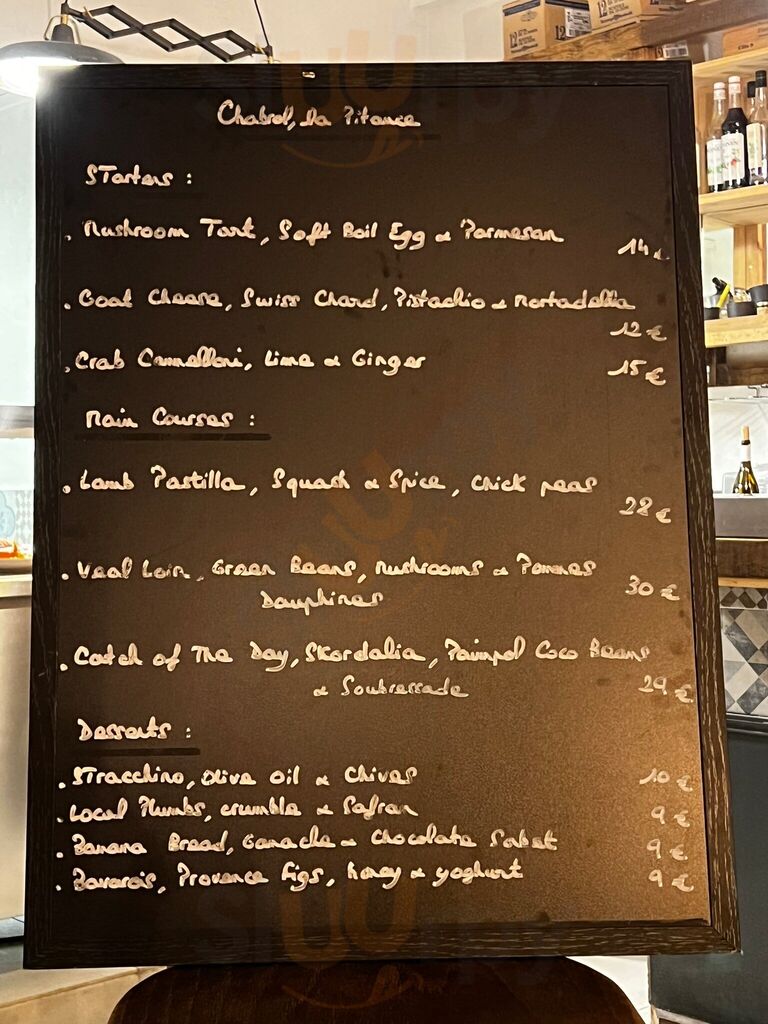 Chabrol, La Pitance
Starters :
. Mushroom Tart, Soft Boil Egg & Parmesan
14€
. Goat Cheese, Swiss Chard, Pistachio & Mortadella
12 €
. Crab Cannelloni, Lime & Ginger 15€
Main Courses :
. Lamb Pastilla, Squash & Spice, Chick peas
28€
. Veal Loin, Green Beans, Mushrooms & Pommes 30€
Dauphines
. Catch of The Day, Skordalia, Paimpol Coco Beans
& Soubressade 29€
Desserts :
. Stracchino, Olive Oil & Chives 10 €
. Local Plumbs, crumble & Safran 9 €
. Banana Bread, Ganache & Chocolate Sorbet 9 €
. Bavarois, Provence Figs, honey & yoghurt 9 €